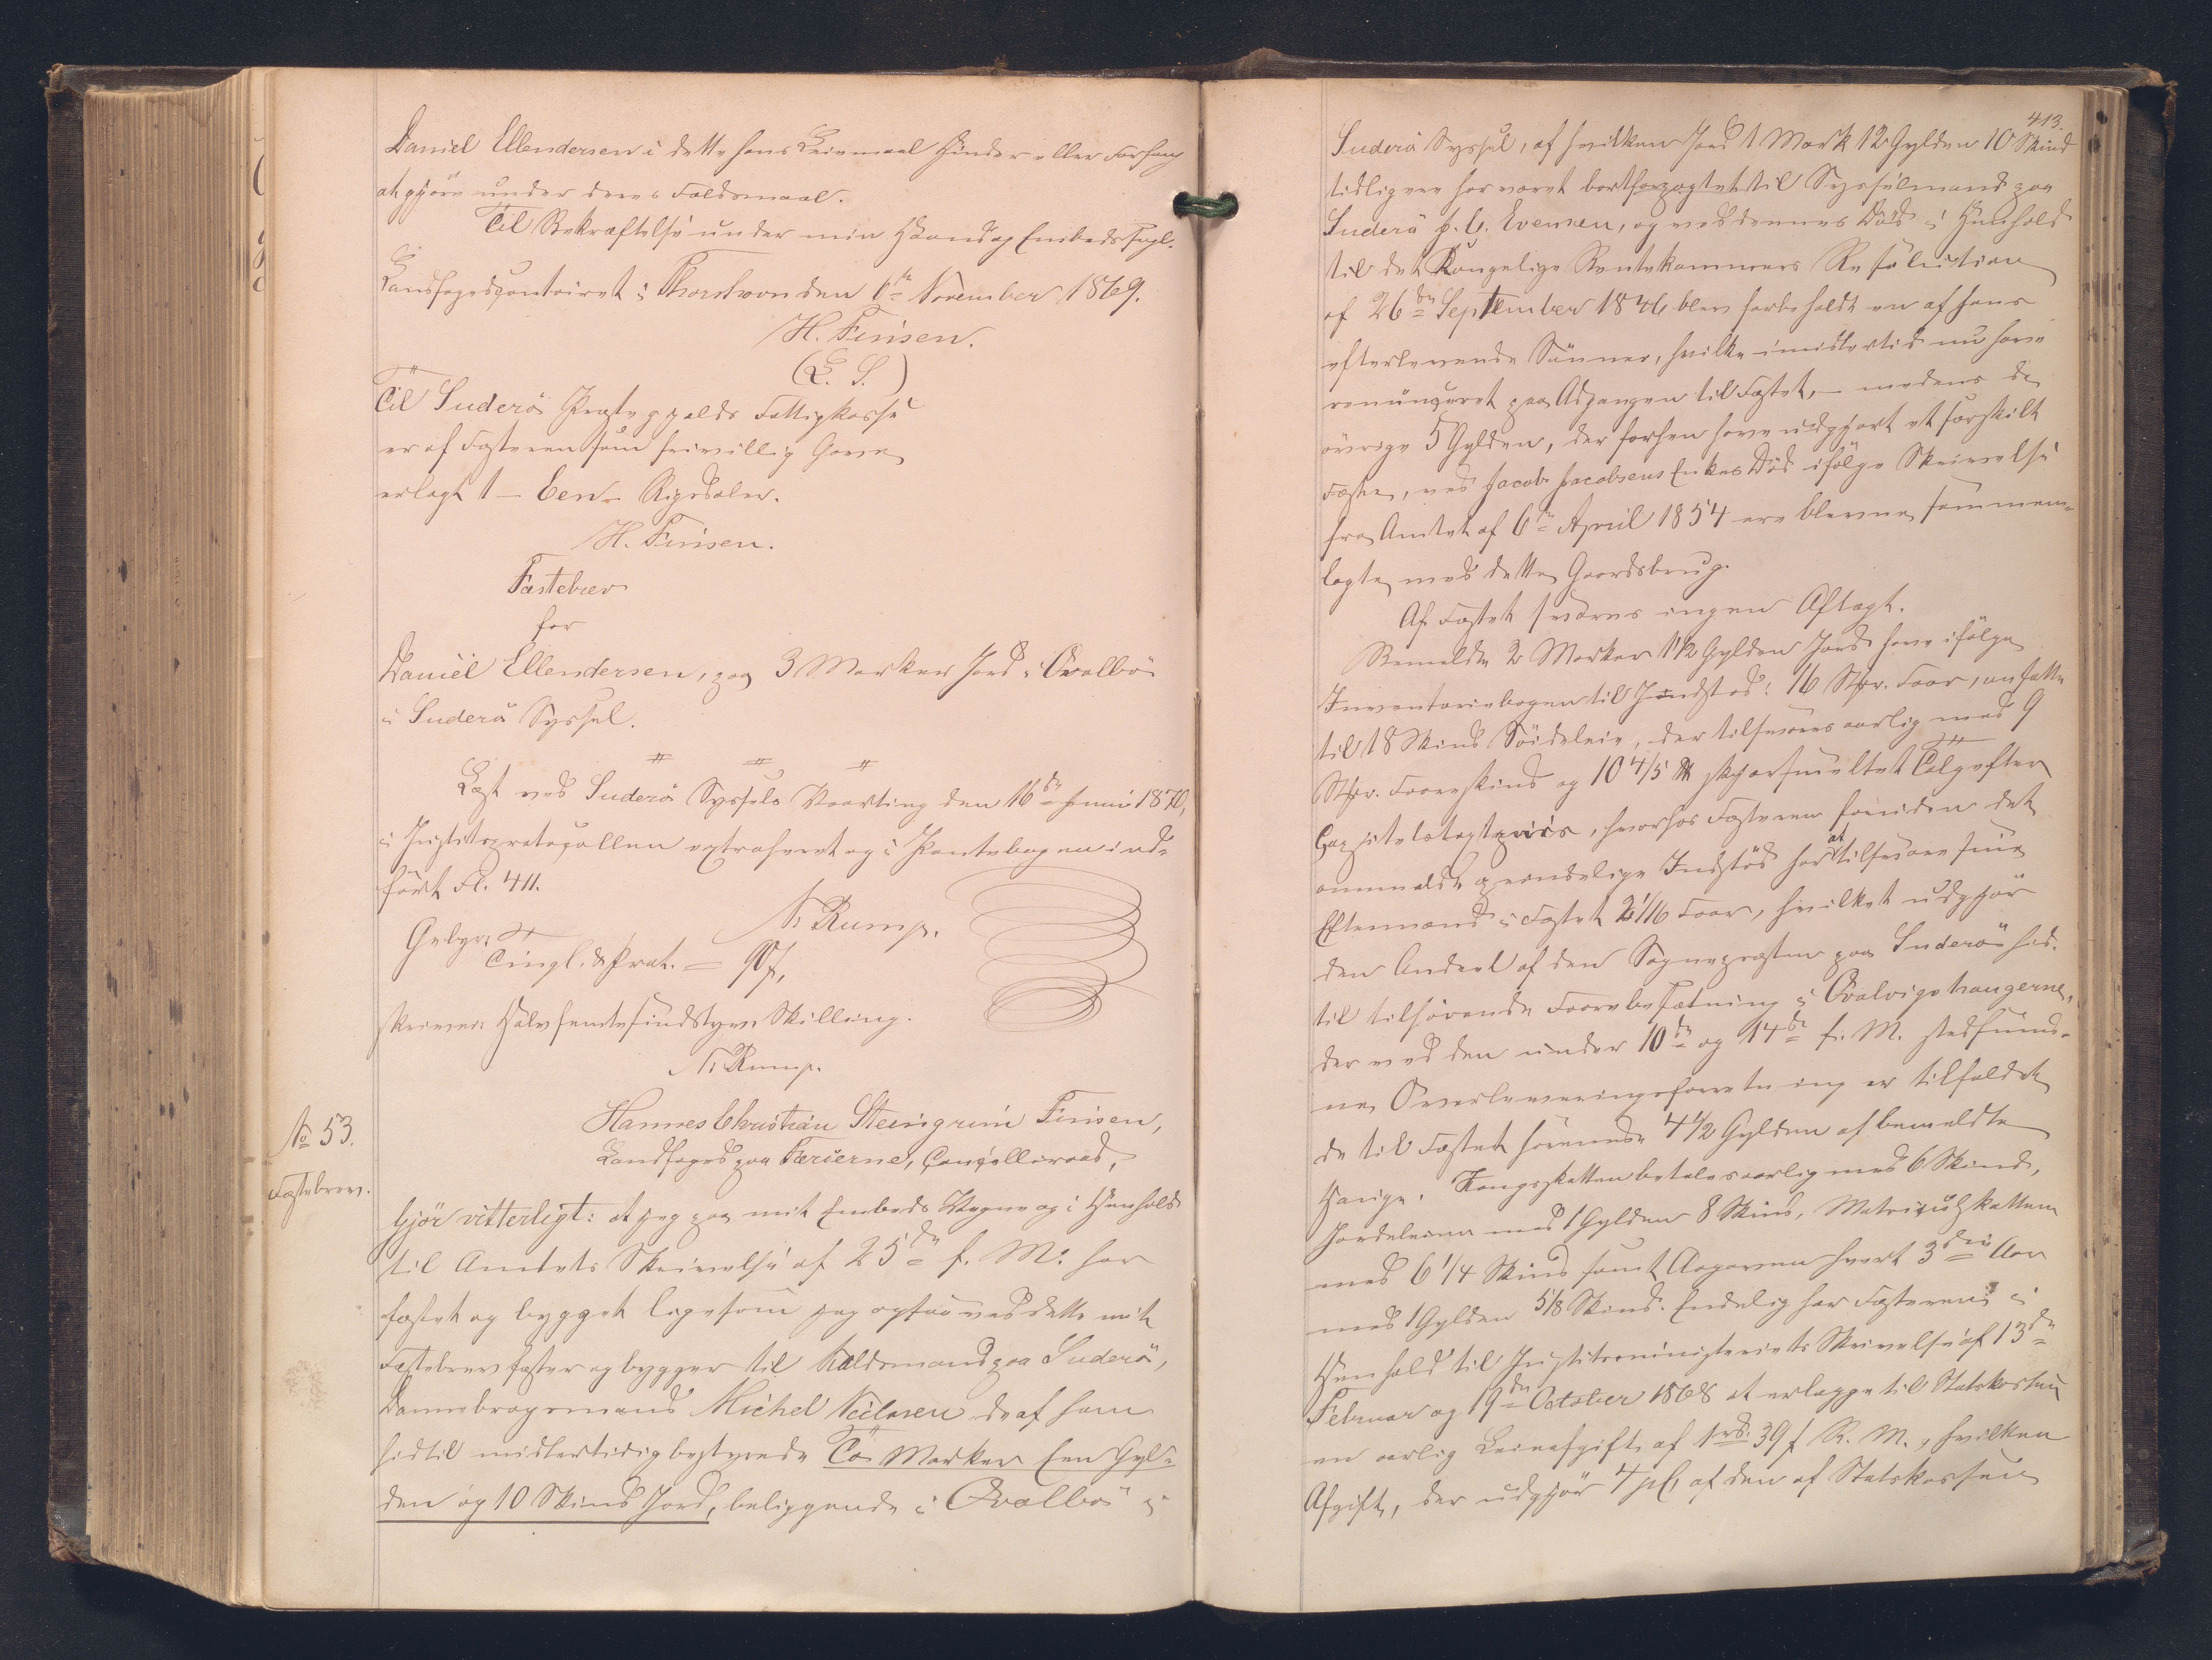 Daniel Ellendersen i dette hans Leiemaal Hinder eller Forfang
at gjøre under deres Faldsmaal.
Til Bekræftelse under min Haand og Embeds Segl.
Landfogedcontoiret i Thorshavn den 6te November 1869.
H. Finsen.
(L. S.)
Til Suderö Præstegjelds Fattigkasse
er af Fæsteren som frivillig Gave
erlagt 1 – Een – Rigsdaler.
H. Finsen.
Fæstebrev
for
Daniel Ellendersen, paa 3 Marker Jord i Qvalbö
i Suderö Syssel.
Læst ved Suderö Syssels Vaarting den 16de Juni 1870,
i Justitsprotocollen extraheret og i Pantebogen ind-
ført Fl. 411.
N. Rump.
Gebyr:
Tingl. & Prot. = 90 ß,
skriver Halvfemtesindstyve Skilling.
N. Rump.
No 53.
Fæstebrev.
Hannes Christian Steingrim Finsen,
Landfoged paa Færöerne, Cancelliraad,
Gjör vitterligt: at jeg paa mit Embeds Vegne og i Henhold
til Amtets Skrivelse af 25de f. M. har
fæstet og bygget ligesom jeg ogsaa ved dette mit
Fæstebrev fæster og bygger til Kaldsmand paa Suderö,
Dannebrogsmand Michel Nielsen de af ham
hidtil midlertidig bestyrede To Marker Een Gyl-
den og 10 Skind Jord, beliggende i Qvalbö i
413.
Suderö Syssel, af hvilken Jord 1 Mark 12 Gylden 10 Skind
tidligere har været bortforpagtet til Sysselmand paa
Suderö J. C. Evensen, og ved dennes Död i Henhold
til det Kongelige Rentekammers Resolution
af 26de September 1846 blev forbeholdt en af hans
efterlevende Sönner, hvilke imidlertid nu have
renunceret paa Adgangen til Fæstet, – medens de
övrige 5 Gylden, der forhen have udgjort et særskilt
Fæste, ved Jacob Jacobsens Enkes Död ifölge Skrivelse
fra Amtet af 6te April 1854 ere blevne sammen-
lagte med dette Gaardsbrug.
Af Fæstet svares ingen Aftægt.
Bemeldte 2 Marker 1 1/2 Gylden Jord have ifölge
Inventariebogen til Indstød: 16 Stkr. Faar, ansatte
til 18 Skind Söideleie, der tilsvares aarlig med 9
Stkr. Faareskind og 10 4/5 ℔ skjærsmeltet Tælg efter
Capitelstaxtpriis, hvorhos Fæsteren foruden det
anmeldte egentlige Indstöd har at tilsvare sin
Eftermand i Fæstet 2 1/16 Faar, hvilket udgjör
den Andeel af den Sognepræsten paa Suderö hid-
til tilhörende Faarebesætning i Qvalvigshaugerne,
der ved den under 10de og 14de f. M. stedfund-
ne Overleveringsforretning er tilfaldet
de til Fæstet hörende 4 1/2 Gylden af bemeldte
Hauge. Kongsskatten betales aarlig med 6 Skind,
Jordeleien med 1 Gylden 8 Skind, Matriculskatten
med 6 1/4 Skind samt Aargaven hvert 3die Aar
med 1 Gylden 5 1/8 Skind. Endelig har Fæsteren i
Henhold til Justitsministeriets Skrivelse af 13de
Februar og 19de October 1868 at erlægge til Statskassen
en aarlig Leieafgift af 1 rd. 39 ß R. M., hvilken
Afgift, der udgjör 4 pC. af den af Statskassen